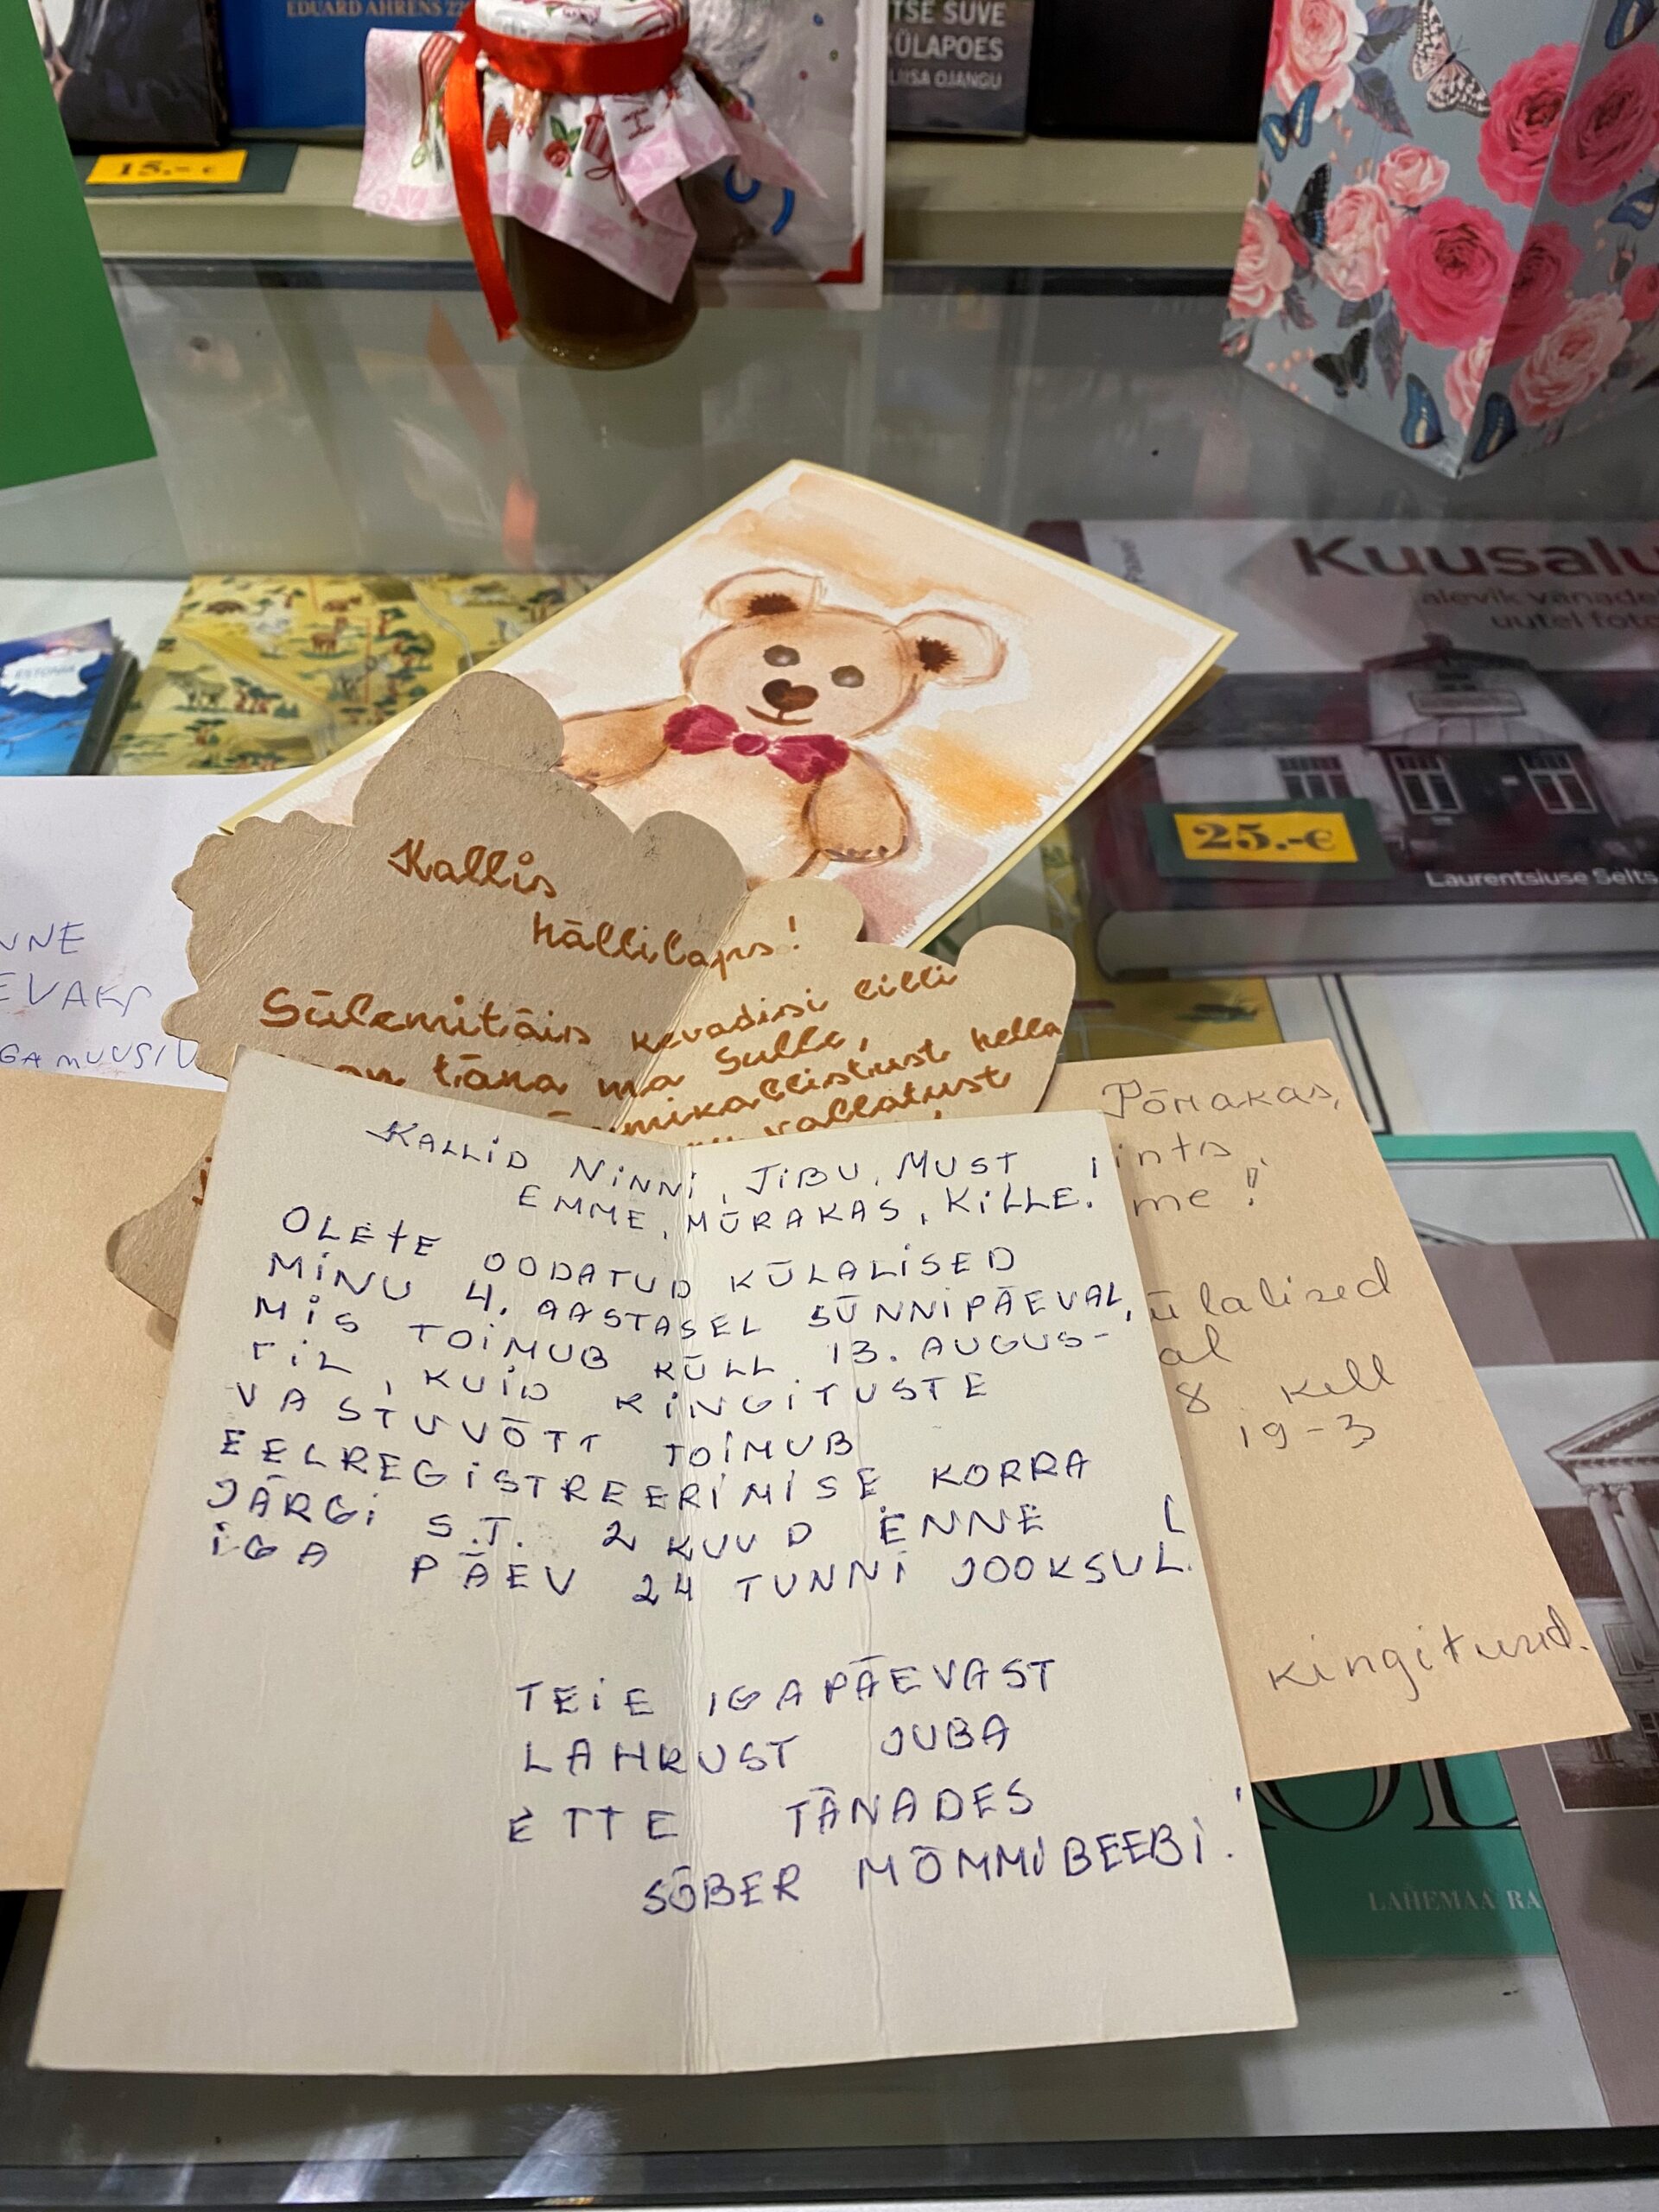 EDUARD AHRENS
TSE SUVE
KÜLAPOES
LIISA OJANGU
15.- €
ESTONIA
Kuusalu
alevik vanade
uutel foto
25.-€
Laurentsiuse Selts
Kallis
hällilaps!
Sülemitäis kevadisi lilli
täna ma Sulle,
mikallistust hella
vallatust
NNE
EVAKS
GAMUUSIV
Põmakas,
ints
me!
ülalised
al
8 kell
19-3
kingitused.
KALLID NINNI, JIBU, MUST
EMME, MÜRAKAS, KILLE!
OLETE OODATUD KÜLALISED
MINU 4. AASTASEL SÜNNIPÄEVAL,
MIS TOIMUB KÜLL 13. AUGUS-
TIL, KUID KINGITUSTE
VASTUVÕTT TOIMUB
EELREGISTREERIMISE KORRA
JÄRGI S.T. 2 KUUD ENNE
IGA PÄEV 24 TUNNI JOOKSUL.
TEIE IGAPÄEVAST
LAHKUST JUBA
ETTE TÄNADES
SÕBER MÕMMIBEEBI!
LAHEMAA RA